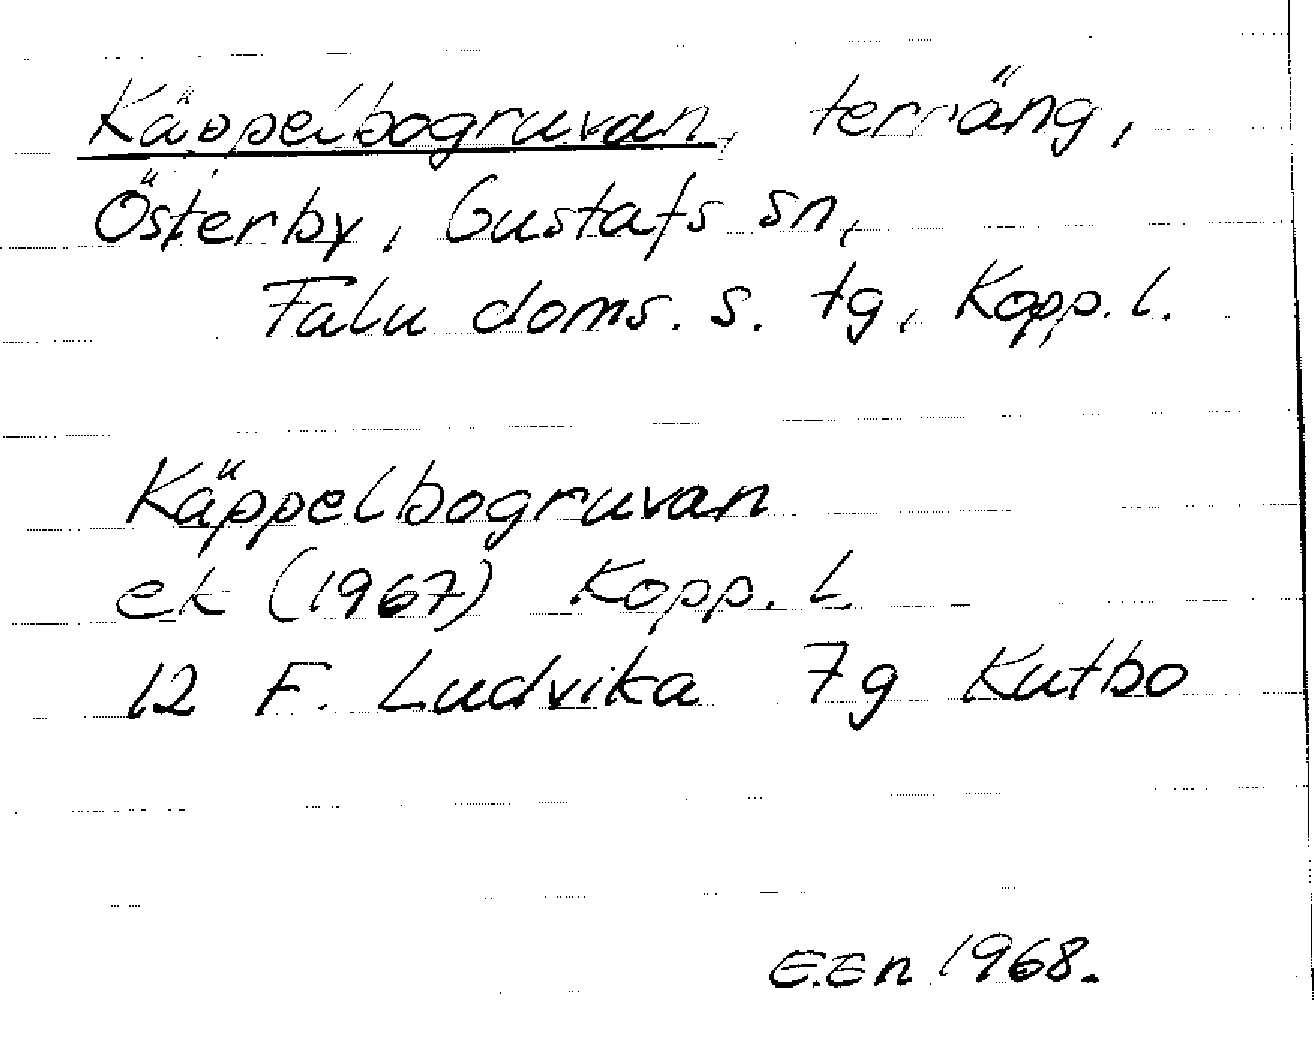 Käppelbogruvan, terräng,
Österby, Gustafs sn,
Falu doms. s. tg, Kopp. l.
Käppelbogruvan
ek (1967) Kopp. L.
12 F. Ludvika 7g Kutbo
E.En 1968.